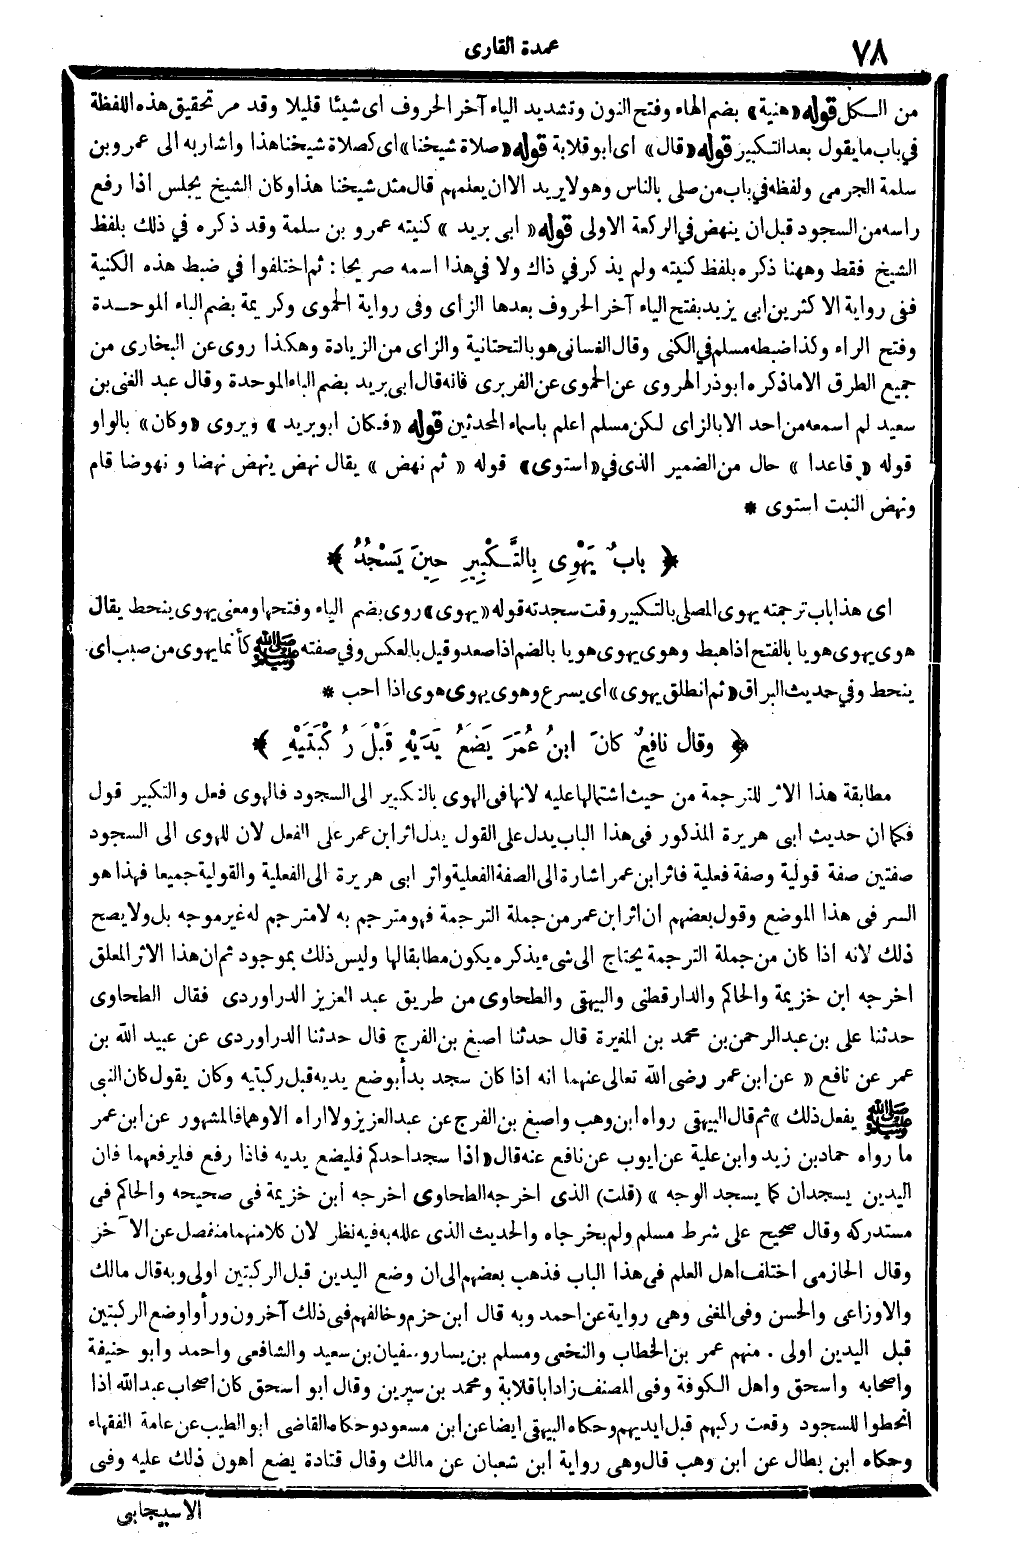 ٧٨
عمدة القارى
من الكل قوله «هنية» بضم الهاء وفتح النون وتشديد الياء آخر الحروف اى شيئا قليلا وقد مر تحقيق هذه اللفظة
في باب ما يقول بعد التكبير قوله «قال» اى ابو قلابة قوله «صلاة شيخنا» اى كصلاة شيخنا هذا واشار به الى عمرو بن
سلمة الجرمى ولفظه في باب من صلى بالناس وهو لا يريد الا ان يعلمهم قال مثل شيخنا هذا وكان الشيخ يجلس اذا رفع
راسه من السجود قبل ان ينهض في الركعة الاولى قوله « ابى بريد » كنيته عمرو بن سلمة وقد ذكره في ذلك بلفظ
الشيخ فقط وههنا ذكره بلفظ كنيته ولم يذكر في ذاك ولا في هذا اسمه صريحا : ثم اختلفوا في ضبط هذه الكنية
ففى رواية الاكثرين ابى يزيد بفتح الياء آخر الحروف بعدها الزاى وفى رواية الحموى وكريمة بضم الباء الموحدة
وفتح الراء وكذا ضبطه مسلم في الكنى وقال الغسانى هو بالتحتانية والزاى من الزيادة وهكذا روى عن البخارى من
جميع الطرق الا ما ذكره ابو ذر الهروى عن الحموى عن الفربرى فانه قال ابى بريد بضم الباء الموحدة وقال عبد الغنى بن
سعيد لم اسمعه من احد الا بالزاى لكن مسلم اعلم باسماء المحدثين قوله «فكان ابو بريد» ويروى «وكان» بالواو
قوله « قاعدا » حال من الضمير الذى في «استوى» قوله « ثم نهض » يقال نهض ينهض نهضا و نهوضا قام
ونهض النبت استوى *
﴿ بابٌ يَهْوِى بِالتَّكْبِيرِ حِينَ يَسْجُدُ ﴾
اى هذا باب ترجمته يهوى المصلى بالتكبير وقت سجدته قوله «يهوى» روى بضم الياء وفتحها ومعنى يهوى ينحط يقال
هوى يهوى هويا بالفتح اذا هبط وهوى يهوى هويا بالضم اذا صعد وقيل بالعكس وفي صفته ﷺ كأنما يهوى من صبب اى
ينحط وفي حديث البراق «ثم انطلق يهوى» اى يسرع وهوى يهوى هوى اذا احب *
﴿ وقال نافِعٌ كانَ ابنُ عُمَرَ يَضَعُ يَدَيْهِ قَبْلَ رُكْبَتَيْهِ ﴾
مطابقة هذا الاثر للترجمة من حيث اشتمالها عليه لانها فى الهوى بالتكبير الى السجود فالهوى فعل والتكبير قول
فكما ان حديث ابى هريرة المذكور فى هذا الباب يدل على القول يدل اثر ابن عمر على الفعل لان للهوى الى السجود
صفتين صفة قولية وصفة فعلية فاثر ابن عمر اشارة الى الصفة الفعلية واثر ابى هريرة الى الفعلية والقولية جميعا فهذا هو
السر فى هذا الموضع وقول بعضهم ان اثر ابن عمر من جملة الترجمة فهو مترجم به لا مترجم له غير موجه بل ولا يصح
ذلك لانه اذا كان من جملة الترجمة يحتاج الى شىء يذكره يكون مطابقا لها وليس ذلك بموجود ثم ان هذا الاثر المعلق
اخرجه ابن خزيمة والحاكم والدارقطنى والبيهقى والطحاوى من طريق عبد العزيز الدراوردى فقال الطحاوى
حدثنا على بن عبد الرحمن بن محمد بن المغيرة قال حدثنا اصبغ بن الفرج قال حدثنا الدراوردى عن عبيد الله بن
عمر عن نافع « عن ابن عمر رضى الله تعالى عنهما انه اذا كان سجد بدأ بوضع يديه قبل ركبتيه وكان يقول كان النبى
ﷺ يفعل ذلك » ثم قال البيهقى رواه ابن وهب واصبغ بن الفرج عن عبد العزيز ولا اراه الا وهما فالمشهور عن ابن عمر
ما رواه حماد بن زيد وابن علية عن ايوب عن نافع عنه قال « اذا سجد احدكم فليضع يديه فاذا رفع فليرفعهما فان
اليدين يسجدان كما يسجد الوجه » (قلت) الذى اخرجه الطحاوى اخرجه ابن خزيمة فى صحيحه والحاكم فى
مستدركه وقال صحيح على شرط مسلم ولم يخرجاه والحديث الذى علله به فيه نظر لان كلا منهما منفصل عن الآخر
وقال الحازمى اختلف اهل العلم فى هذا الباب فذهب بعضهم الى ان وضع اليدين قبل الركبتين اولى وبه قال مالك
والاوزاعى والحسن وفى المغنى وهى رواية عن احمد وبه قال ابن حزم وخالفهم فى ذلك آخرون ورأوا وضع الركبتين
قبل اليدين اولى . منهم عمر بن الخطاب والنخعى ومسلم بن يسار وسفيان بن سعيد والشافعى واحمد وابو حنيفة
واصحابه واسحق واهل الكوفة وفى المصنف زاد ابا قلابة ومحمد بن سيرين وقال ابو اسحق كان اصحاب عبدالله اذا
انحطوا للسجود وقعت ركبهم قبل ايديهم وحكاه البيهقى ايضا عن ابن مسعود وحكاه القاضى ابو الطيب عن عامة الفقهاء
وحكاه ابن بطال عن ابن وهب قال وهى رواية ابن شعبان عن مالك وقال قتادة يضع اهون ذلك عليه وفى
الاسبيجابى